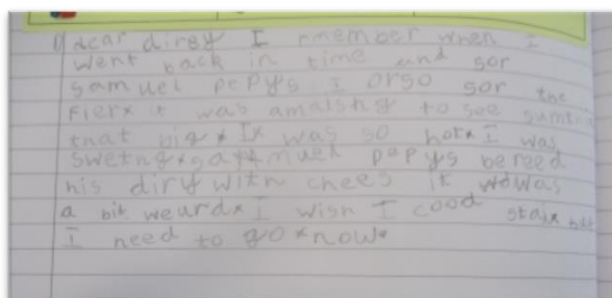 dear direy I rmember when I
went back in time and sor
samuel pepys I orso sor the
fierx it was amaisng to see sumt
that big x Ix was so hotx I was
swetngx samuel pepys bereed
his diry with chees it was
a bit weurdx I wish I cood staix but
I need to go xnow.